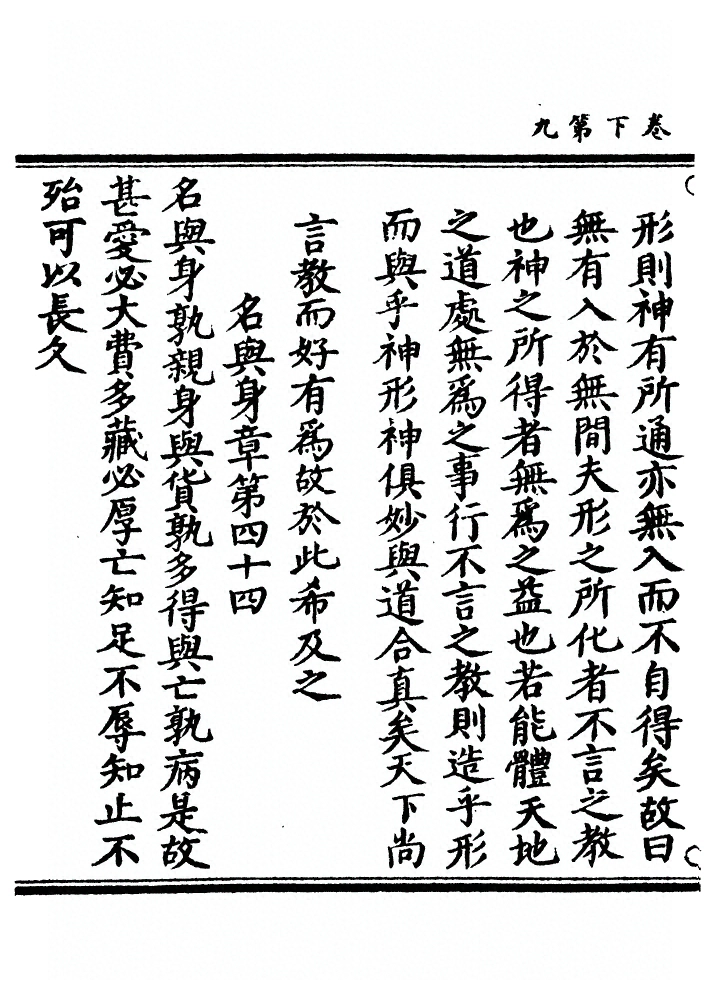 卷下第九
形則神有所通亦無入而不自得矣故曰
無有入於無間夫形之所化者不言之教
也神之所得者無爲之益也若能體天地
之道處無爲之事行不言之教則造乎形
而與乎神形神俱妙與道合真矣天下尚
言教而好有爲故於此希及之
名與身章第四十四
名與身孰親身與貨孰多得與亡孰病是故
甚愛必大費多藏必厚亡知足不辱知止不
殆可以長久